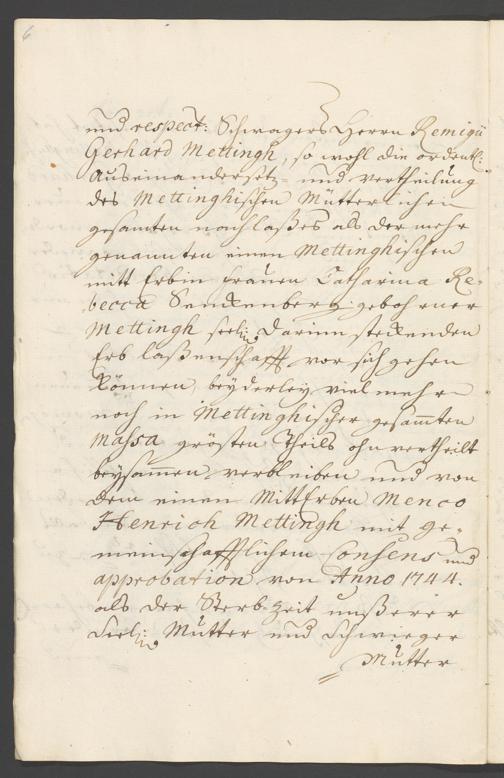 6
und respect: Schwagers Herrn Remigii
Gerhard Mettingh, so wohl die ordentl:
Auseinandersetz- und vertheilung
des Mettinghischen Mütterlichen
gesamten nachlaßes als der mehr
genannten einen Mettinghischen
mitt Erbin frauen Catharina Re-
becca Senckenberg gebohrner
Mettingh seel: darinn steckenden
Erb laßenschafft vor sich gehen
können, beyderley viel mehr
noch in Mettinghischer gesamten
Massa grösten Theils ohnvertheilt
beysammen verbleiben und von
dem einen MittErben Menco
Henrich Mettingh mit ge-
meinschafftlichem Consens und
approbation von Anno 1744.
als der Sterb-zeit unßerer
Seel: Mutter und Schwieger
Mutter